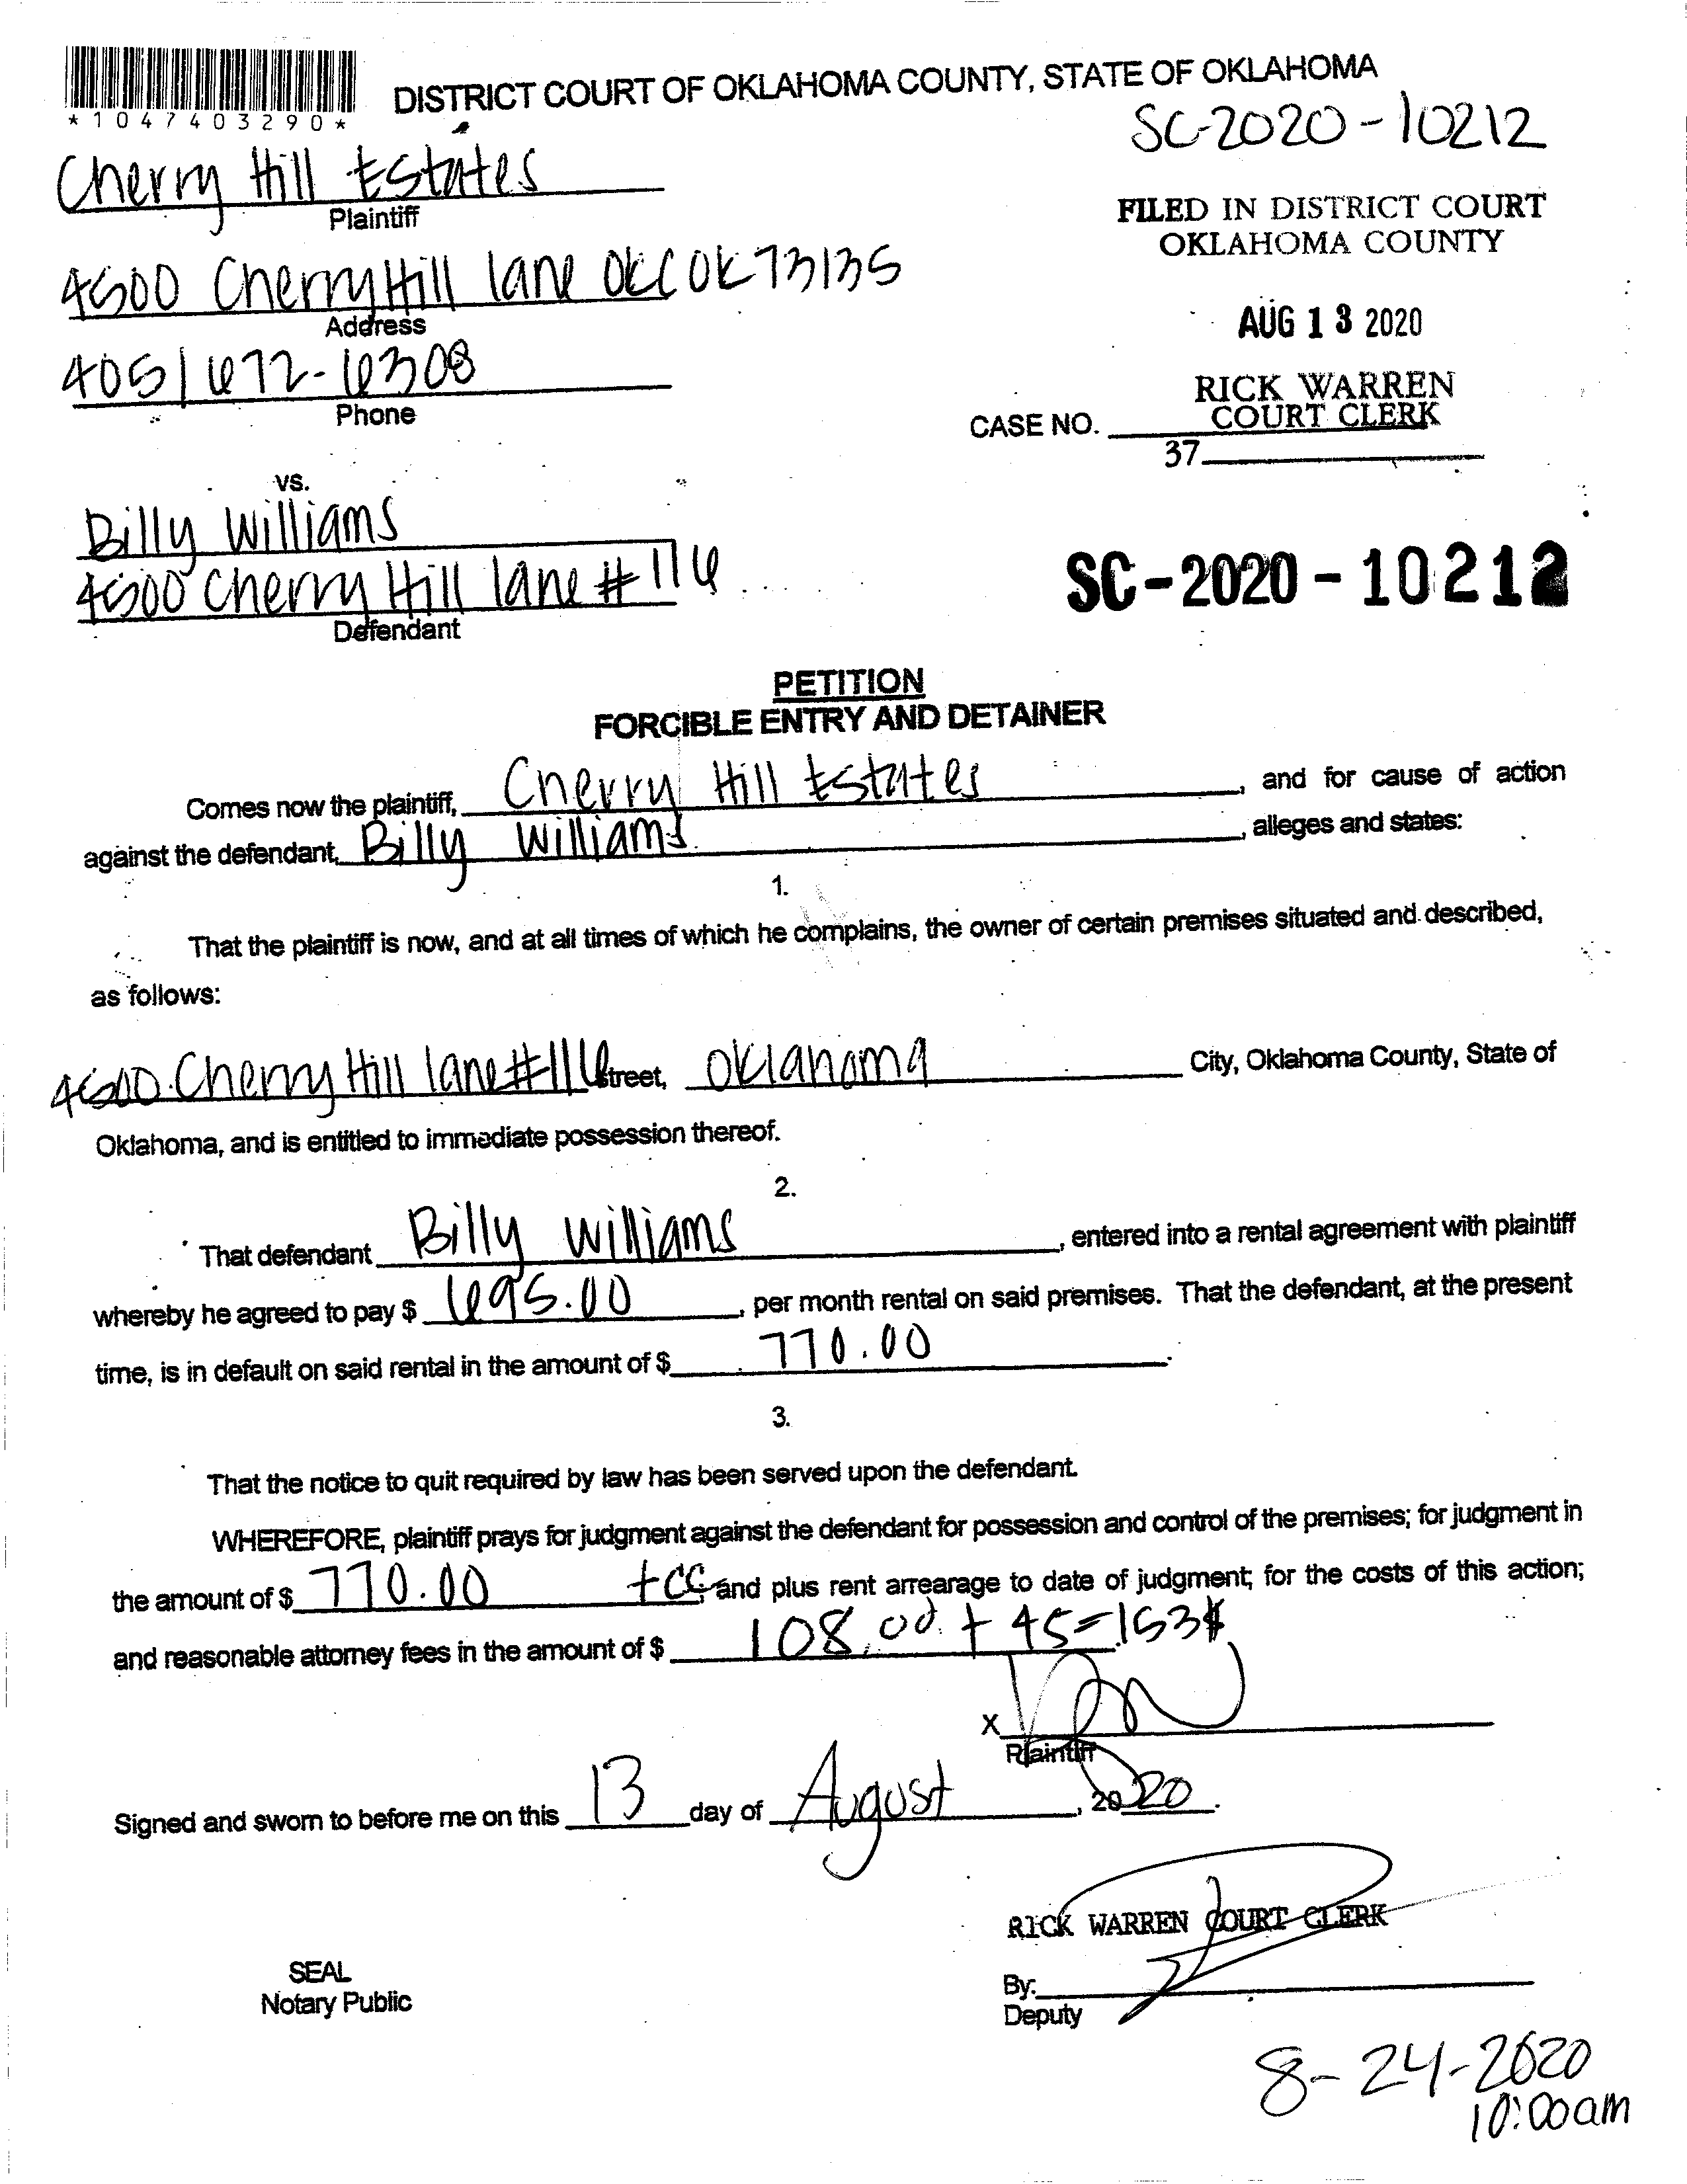 *1047403290*
DISTRICT COURT OF OKLAHOMA COUNTY, STATE OF OKLAHOMA
SC-2020-10212
Cherry Hill Estates
Plaintiff
FILED IN DISTRICT COURT
OKLAHOMA COUNTY
4500 Cherry Hill lane OKC OK 73135
Address
AUG 13 2020
405/672-6308
Phone
RICK WARREN
COURT CLERK
CASE NO.
37
vs.
Billy Williams
4500 Cherry Hill lane #116
Defendant
SC-2020-10212
PETITION
FORCIBLE ENTRY AND DETAINER
Comes now the plaintiff, Cherry Hill Estates, and for cause of action
against the defendant, Billy Williams, alleges and states:
1.
That the plaintiff is now, and at all times of which he complains, the owner of certain premises situated and described,
as follows:
4500 Cherry Hill lane #116 Street, Oklahoma City, Oklahoma County, State of
Oklahoma, and is entitled to immediate possession thereof.
2.
That defendant Billy Williams, entered into a rental agreement with plaintiff
whereby he agreed to pay $ 695.00, per month rental on said premises. That the defendant, at the present
time, is in default on said rental in the amount of $ 770.00.
3.
That the notice to quit required by law has been served upon the defendant.
WHEREFORE, plaintiff prays for judgment against the defendant for possession and control of the premises; for judgment in
the amount of $ 770.00 +CC, and plus rent arrearage to date of judgment; for the costs of this action;
and reasonable attorney fees in the amount of $ 108.00 + 45=153$
X
Plaintiff
Signed and sworn to before me on this 13 day of August, 2020.
RICK WARREN COURT CLERK
SEAL
Notary Public
By:
Deputy
8-24-2020
10:00am